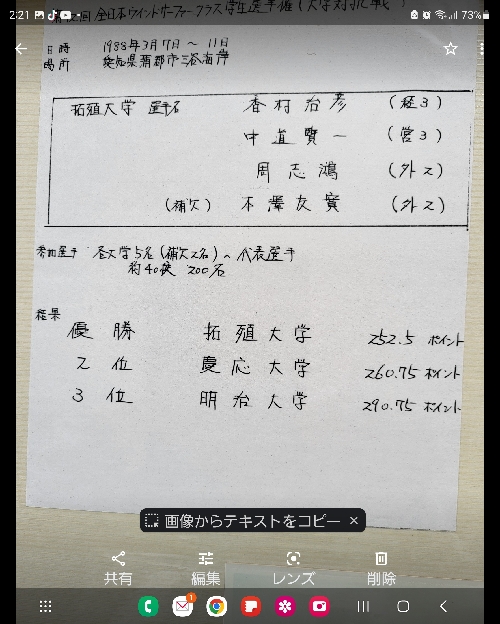 2:21 73%
全日本ウインドサーフィンクラス学生選手権(大学対抗戦)
日時 1988年3月7日〜11日
場所 愛知県蒲郡市三谷海岸
拓殖大学 選手名 香村治彦 (経3)
中道賢一 (営3)
周志鴻 (外2)
(補欠) 木澤友實 (外2)
参加選手 各大学5名(補欠2名)の代表選手
約40校 200名
結果
優勝 拓殖大学 252.5 ポイント
2位 慶応大学 260.75 ポイント
3位 明治大学 290.75 ポイント
画像からテキストをコピー ×
共有 編集 レンズ 削除